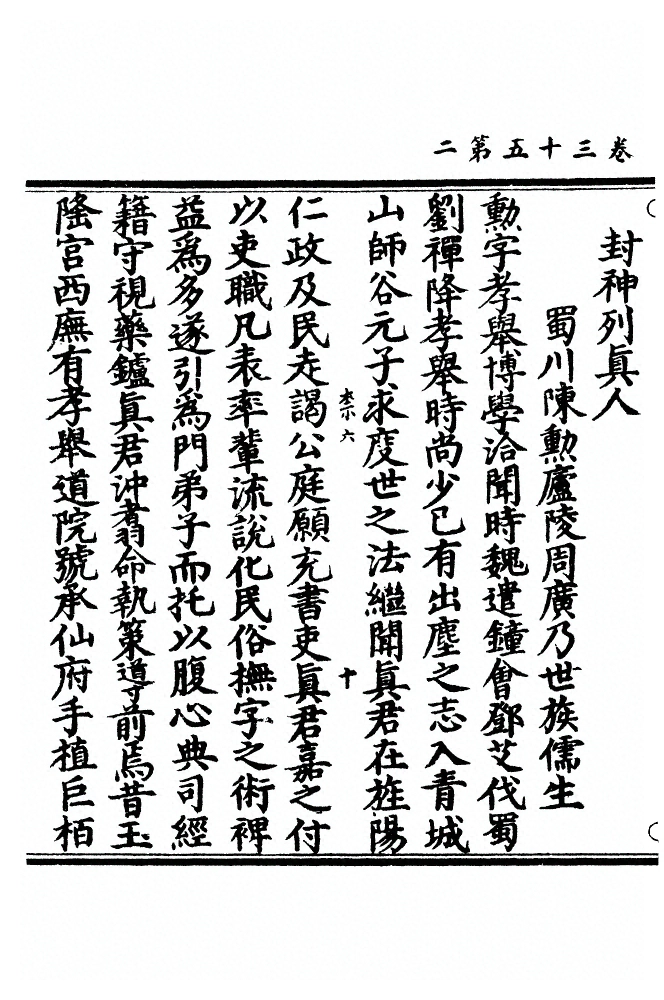 卷三十五第二
封神列眞人
蜀川陳勲廬陵周廣乃世族儒生
勲字孝舉博學洽聞時魏遣鐘會鄧艾伐蜀
劉禪降孝舉時尚少已有出塵之志入青城
山師谷元子求度世之法繼聞眞君在旌陽
仁政及民走謁公庭願充書吏眞君嘉之付
以吏職凡表率輩流說化民俗撫字之術裨
益爲多遂引爲門弟子而托以腹心典司經
籍守視藥鑪眞君沖翥命執策導前焉昔玉
隆宮西廡有孝舉道院號承仙府手植巨栢
六
十